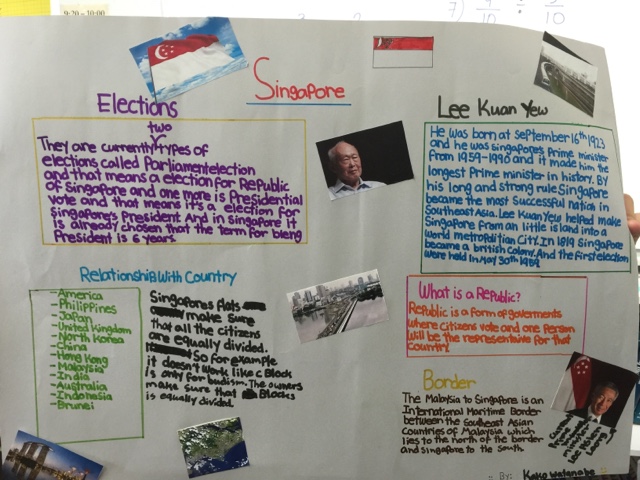 9:20 - 10:00
7) 9/10 ÷ 5/10
Singapore
Elections
two
They are currently types of
elections called Parliament election
and that means a election for Republic
of Singapore and one more is Presidential
vote and that means it's a election for
Singapore's President. And in singapore it
is already chosen that the term for being
President is 6 years.
Lee Kuan Yew
He was born at September 16th 1923
and he was singapore's Prime minister
from 1959-1990 and it made him the
longest Prime minister in history. By
his long and strong rule Singapore
became the most successful nation in
Southeast Asia. Lee Kuan Yew helped make
Singapore from an little island into a
world metropolitan City. In 1819 Singapore
became a british colony. And the first election
were held in May 30th 1959.
Relationship With Country
- America
- Philippines
- Japan
- United kingdom
- North Korea
- China
- Hong Kong
- Malaysia
- India
- Australia
- Indonesia
- Brunei
Singapores flats
make sure
that all the citizens
are equally divided.
So for example
it doesn't work like C Block
is only for budism. The owners
make sure that Blocks
is equally divided.
What is a Republic?
Republic is a form of goverments
where citizens vote and one Person
will be the representive for that
country.
Border
The Malaysia to Singapore is an
International Maritime Border
between the Southeast Asian
Countries of Malaysia which
lies to the north of the border
and singapore to the South.
Prime
minister
Lee Hsien
Loong
By: Kako Watanabe